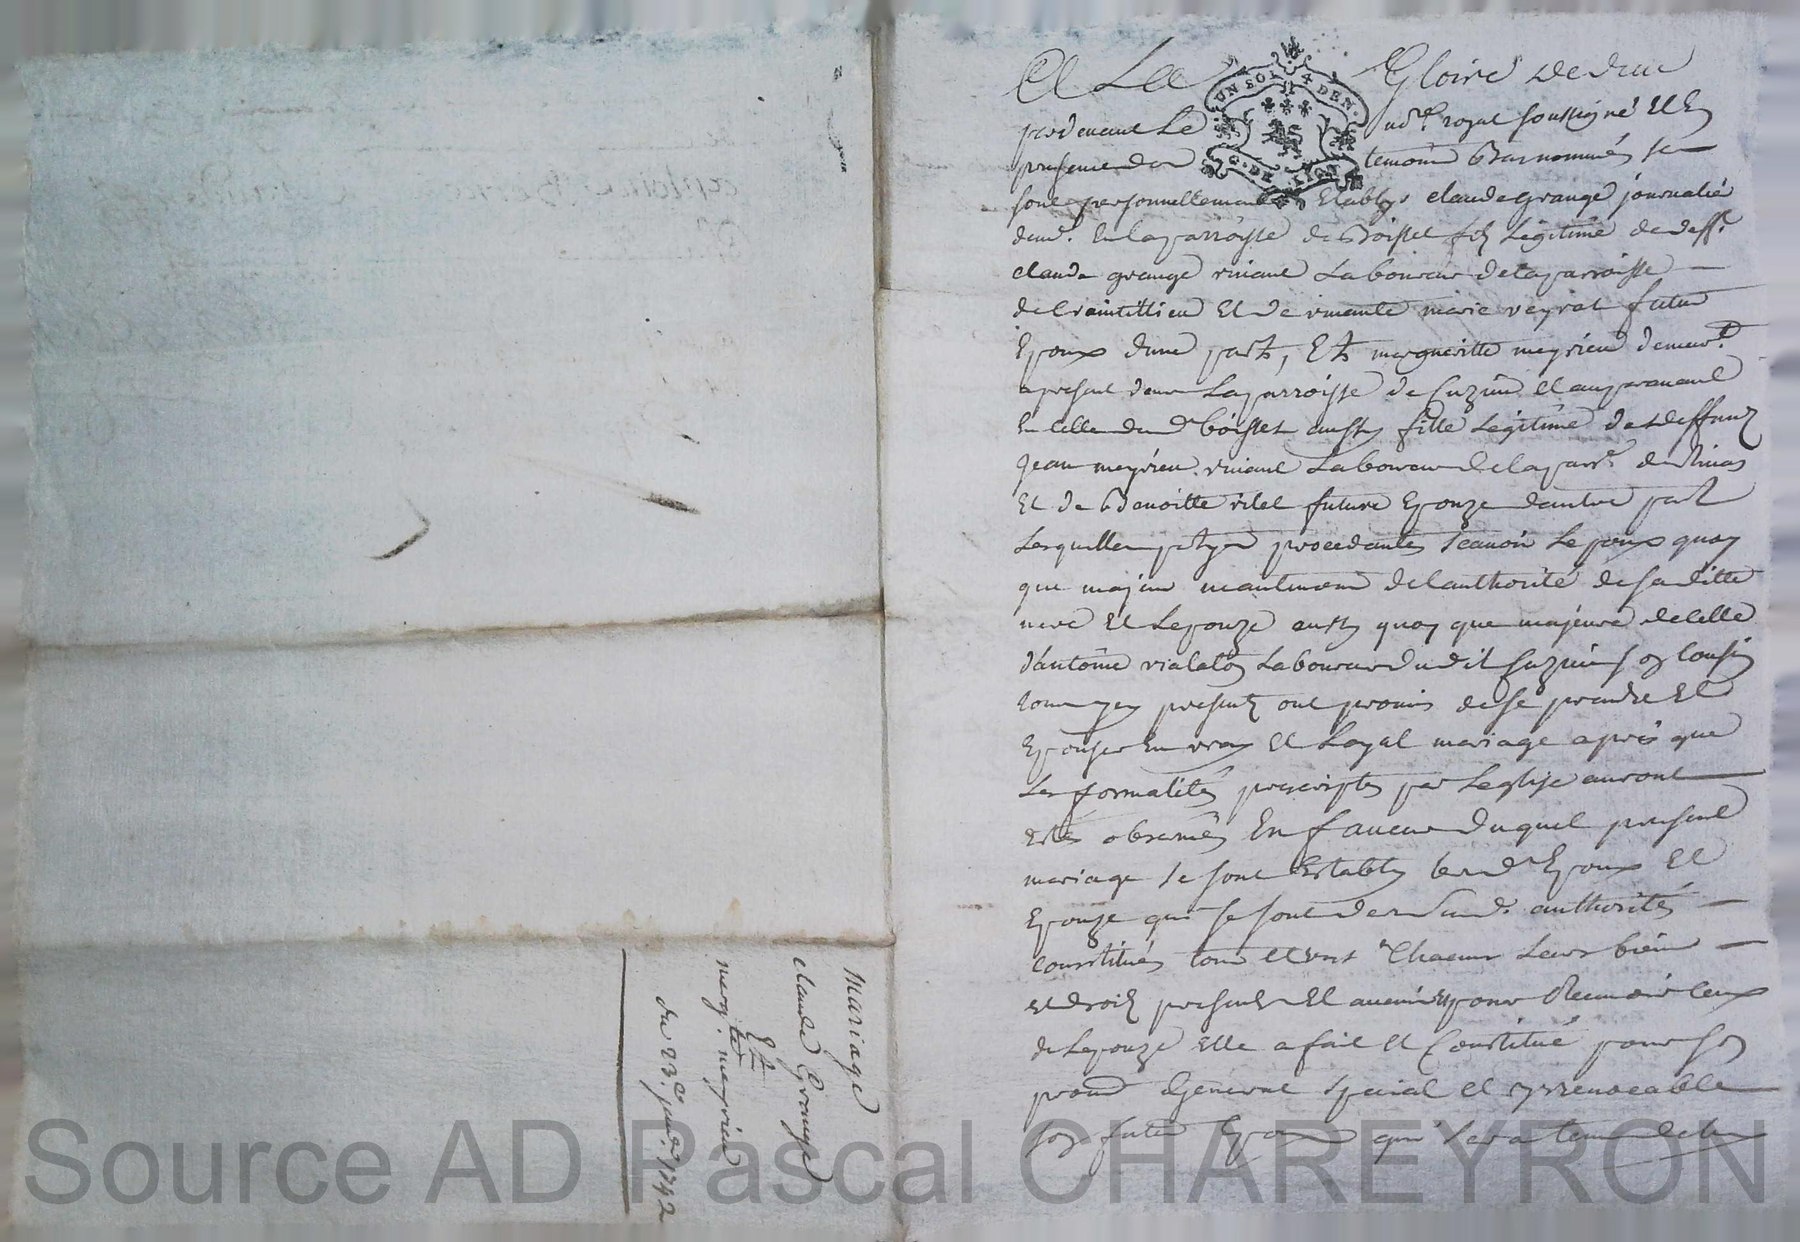 mariage
claude Grange
Et
marg.te meyrieu
du 23.e janv.r 1742
A La Gloire de dieu
UN SOL 4 DEN.
G. DE LYON
pardevant Le no.re royal soussigné Et En
presence des temoins Bas nommés se
sont personnellement Etablys claude grange journalié
dem.t En la parroisse de Boisset fils Legitime de deff.t
claude grange vivant Laboureur de la parroisse
de Craintillieu Et de vivante marie veyrat futur
Epoux d'une part, Et margueritte meyrieu demeur.t
a present dans La parroisse de Cuzieu et auparavant
En celle dud. boisset aussy fille Legitime des deffunts
Jean meyrieu vivant Laboureur de la parr.e de
Et de Benoitte rilet future Epouze d'autre part
Lesquelles partyes procedantes scavoir Lepoux quoy
que majeur neantmoins de l'authorité de sa ditte
mere Et Lepouze aussy quoy que majeure de celle
d'antoine vialaton Laboureur dudit Cuzieu son cousin
tous icy presents ont promis de se prendre Et
Epouser En vray Et Loyal mariage apres que
Les formalités prescriptes par Leglise auront
estés observées En faveur duquel present
mariage se sont Establys lesd. Epoux Et
Epouze qui se sont de leursd. authorités
constitués tous et uns chacuns Leurs biens
et droits presents Et avenir Et pour Recevoir ceux
de Lepouze Elle a fait Et Constitué pour son
procur. General special et irrevocable
son futur Epoux qui sera tenu de les
Source AD Pascal CHAREYRON